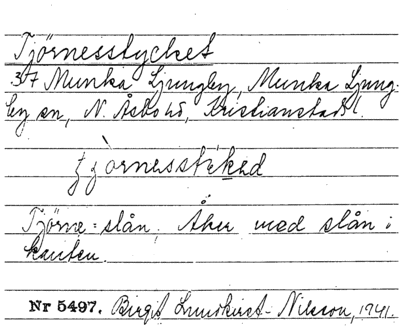 Tjörnesstycket
37 Munka Ljungby, Munka Ljung-
by sn, N. Åsbo hd, Kristianstads l.
Tjörne = slån. Åker med slån i
kanten.
Nr 5497. Birgit Lundkvist-Nilsson, 1941.